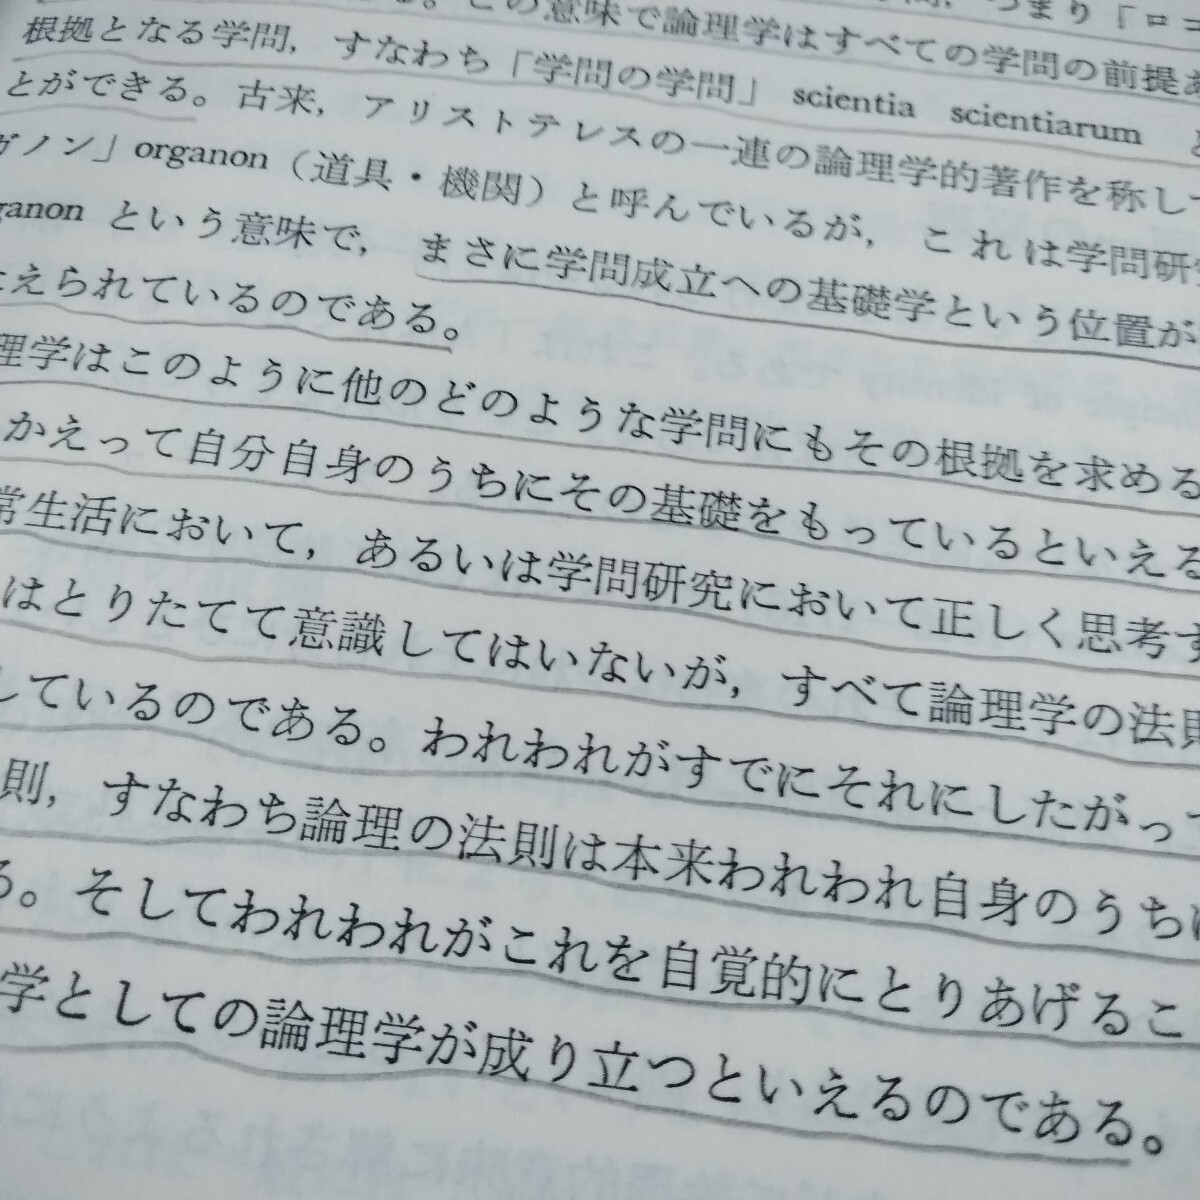 この意味で論理学はすべての学問の前提
根拠となる学問，すなわち「学問の学問」 scientia scientiarum と
とができる。古来，アリストテレスの一連の論理学的著作を称し
ガノン」organon（道具・機関）と呼んでいるが，これは学問研究
ganon という意味で，まさに学問成立への基礎学という位置が
えられているのである。
理学はこのように他のどのような学問にもその根拠を求める
かえって自分自身のうちにその基礎をもっているといえる
常生活において，あるいは学問研究において正しく思考す
はとりたてて意識してはいないが，すべて論理学の法則
しているのである。われわれがすでにそれにしたがって
則，すなわち論理の法則は本来われわれ自身のうちに
る。そしてわれわれがこれを自覚的にとりあげるこ
学としての論理学が成り立つといえるのである。